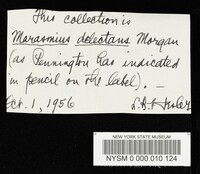 This collection is
Marasmius delectans Morgan
(as Pennington has indicated
in pencil on the label). —
Oct. 1, 1956
NEW YORK STATE MUSEUM
NYSM 0 000 010 124